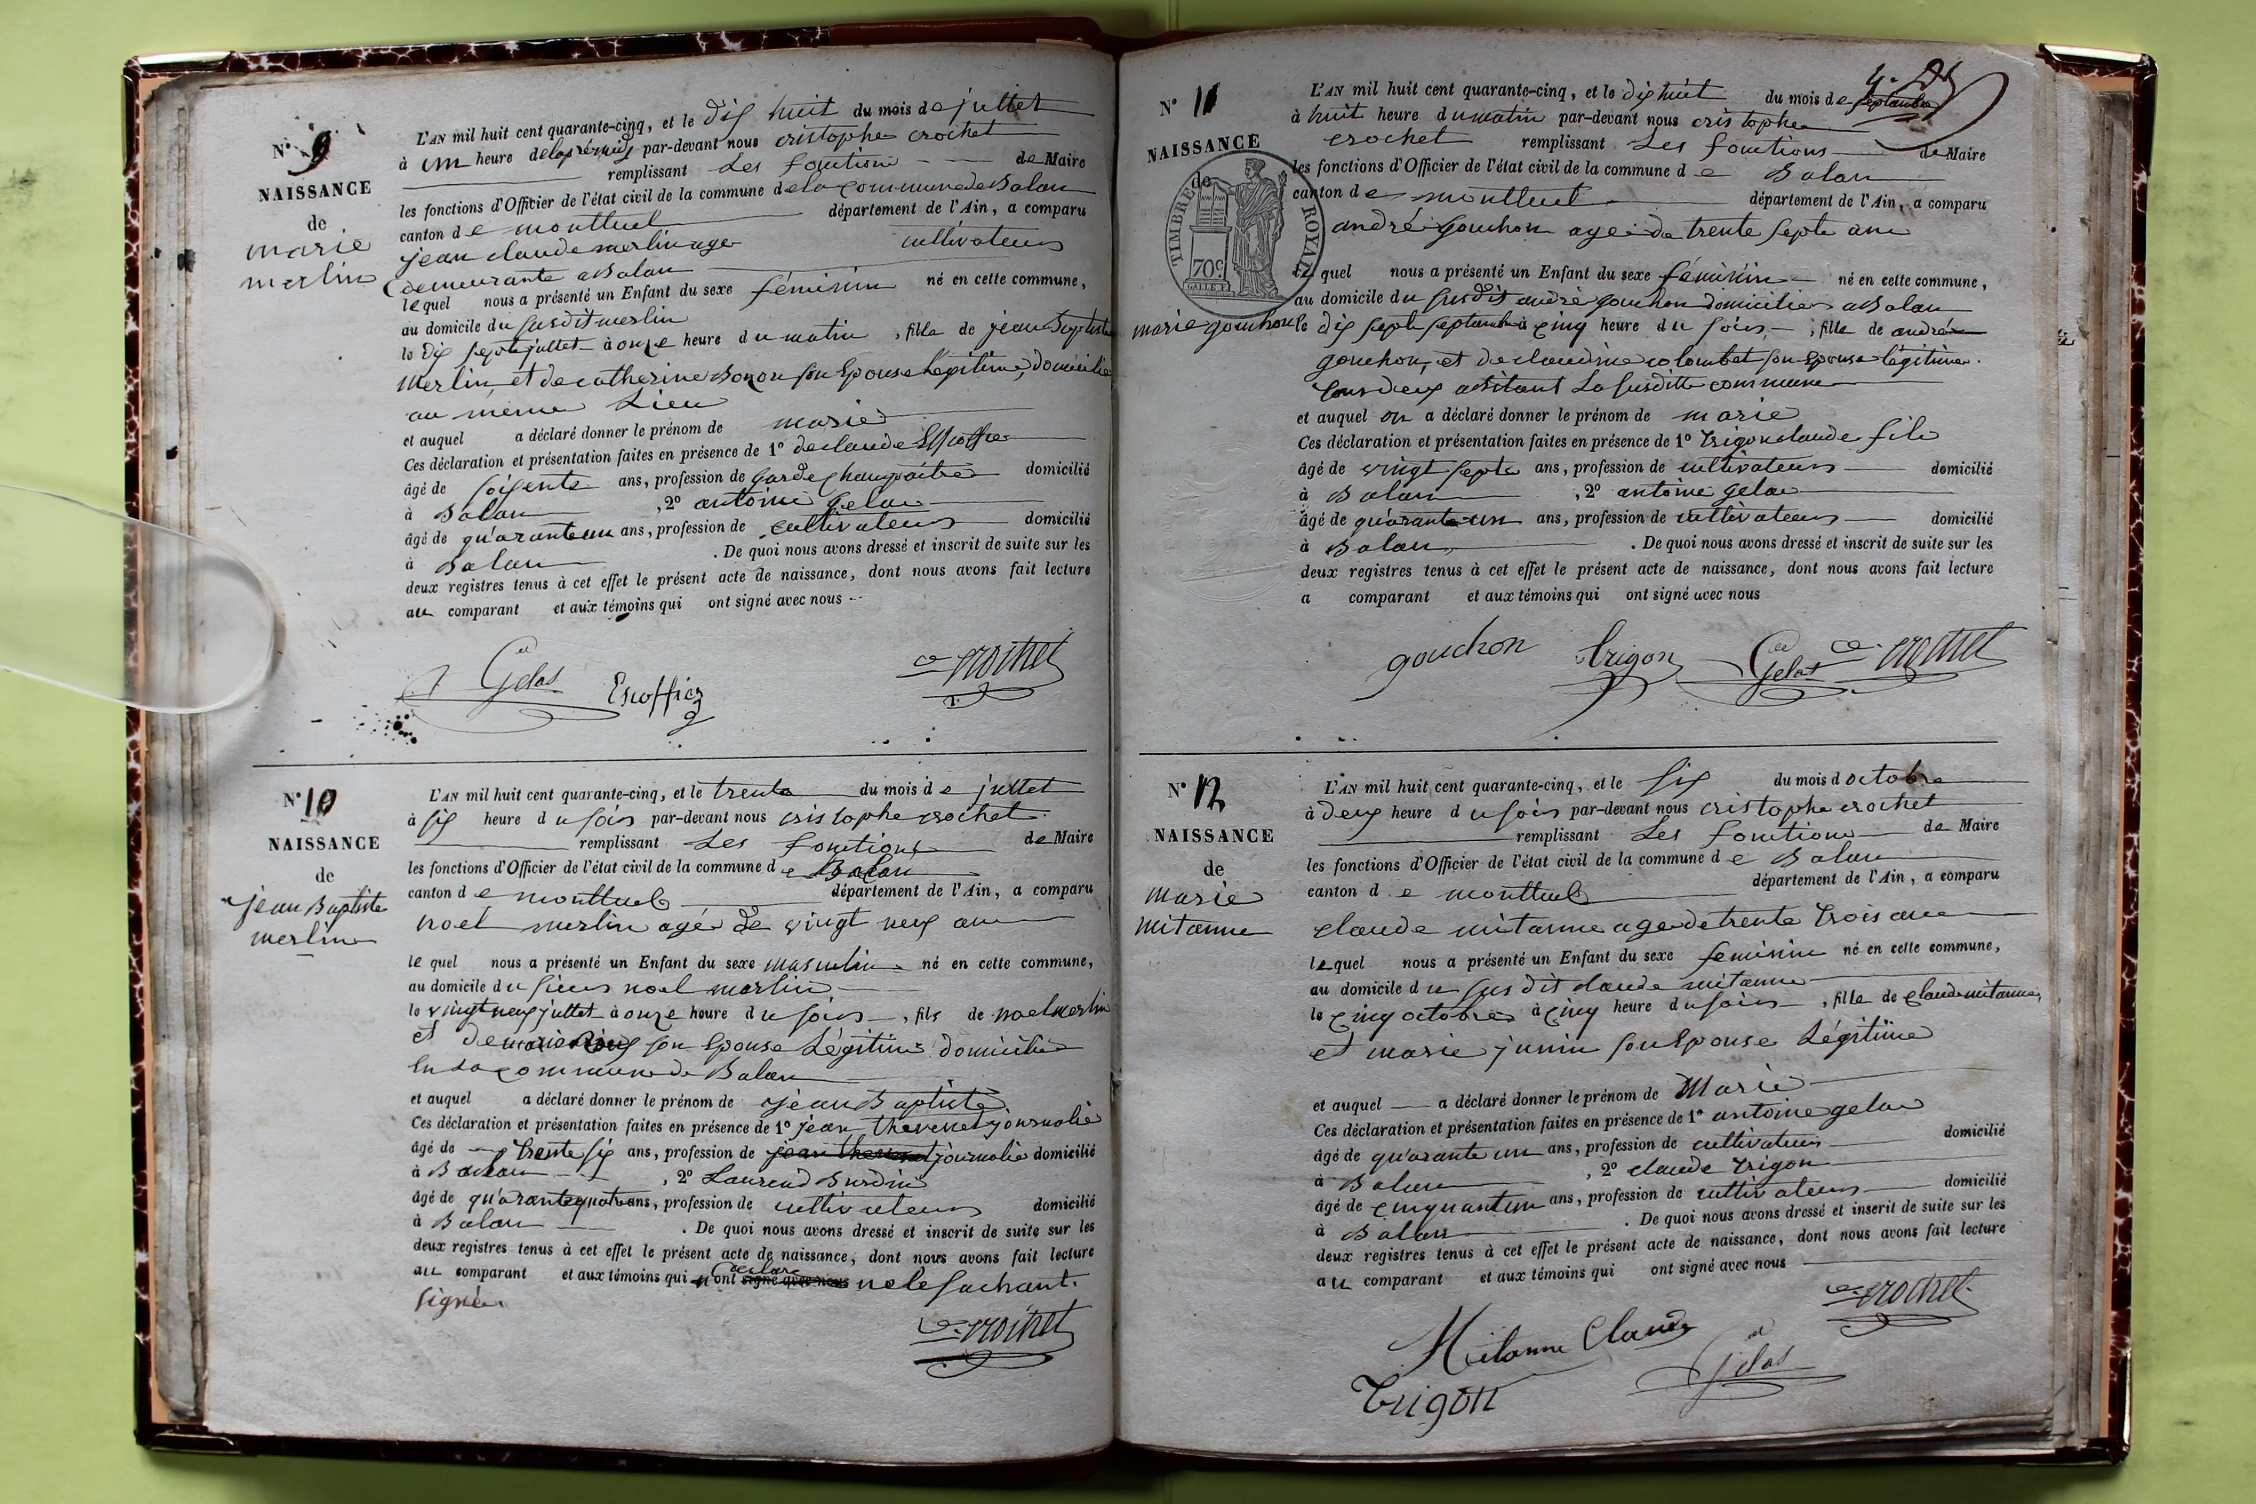 N° 9
NAISSANCE
de
marie
merlin
L'AN mil huit cent quarante-cinq, et le dix huit du mois de juillet
à un heure de par-devant nous cristophe crochet
remplissant Les fonction de Maire
les fonctions d'Officier de l'état civil de la commune de la commune de Balan
canton de montluel département de l'Ain, a comparu
jean claude merlin age cultivateur
demeurante a Balan
lequel nous a présenté un Enfant du sexe féminin né en cette commune,
au domicile du susdit merlin
le dix septe juillet à onze heure du matin, fille de jean Baptiste
Merlin, et de catherine Bonon son Epouse Légitime, domicilie
au même Lieu
et auquel a déclaré donner le prénom de marie
Ces déclaration et présentation faites en présence de 1° de claude
âgé de soixente ans, profession de garde champaitre domicilié
à Balan, 2° antoine gelas
âgé de quarante un ans, profession de cultivateur domicilié
à Balan. De quoi nous avons dressé et inscrit de suite sur les
deux registres tenus à cet effet le présent acte de naissance, dont nous avons fait lecture
au comparant et aux témoins qui ont signé avec nous
Gelas Escoffier crochet
N° 10
NAISSANCE
de
jean Baptiste
merlin
L'AN mil huit cent quarante-cinq, et le trente du mois de juillet
à six heure du soir par-devant nous cristophe crochet
remplissant Les fonctions de Maire
les fonctions d'Officier de l'état civil de la commune de Balan
canton de montluel département de l'Ain, a comparu
noel merlin agé de vingt neuf an
le quel nous a présenté un Enfant du sexe masculin né en cette commune,
au domicile du sieur noel merlin
le vingt neuf juillet à onze heure du soir, fils de noel merlin
et de marie son Epouse Légitime domicilie
en La commune de Balan
et auquel a déclaré donner le prénom de jean Baptiste
Ces déclaration et présentation faites en présence de 1° jean thevenet journalié
âgé de trente six ans, profession de jean thevenet journalié domicilié
à Balan, 2° Laurend Burdin
âgé de quarante quatre ans, profession de cultivateur domicilié
à Balan. De quoi nous avons dressé et inscrit de suite sur les
deux registres tenus à cet effet le présent acte de naissance, dont nous avons fait lecture
au comparant et aux témoins qui ont déclare signé avec nous ne le sachant.
signé
crochet
4.
N° 11
NAISSANCE
de
TIMBRE ROYAL
70c
marie gouchon
L'AN mil huit cent quarante-cinq, et le dix huit du mois de septembre
à huit heure du matin par-devant nous cristophe
crochet remplissant Les fonctions de Maire
les fonctions d'Officier de l'état civil de la commune de Balan
canton de montluel département de l'Ain, a comparu
andré gouchon age de trente septe ans
Le quel nous a présenté un Enfant du sexe féminin né en cette commune,
au domicile du susdit andré gouchon domicilier a Balan
le dix septe septembre à cinq heure du soir, fille de andré
gouchon, et de claudine colombet son Epouse légitime.
tous deux abitant La susditte commune
et auquel on a déclaré donner le prénom de marie
Ces déclaration et présentation faites en présence de 1° trigon claude fils
âgé de vingt septe ans, profession de cultivateur domicilié
à Balan, 2° antoine gelas
âgé de quarante un ans, profession de cultivateur domicilié
à Balan. De quoi nous avons dressé et inscrit de suite sur les
deux registres tenus à cet effet le présent acte de naissance, dont nous avons fait lecture
a comparant et aux témoins qui ont signé avec nous
gouchon trigon Gelas crochet
N° 12
NAISSANCE
de
marie
mitanne
L'AN mil huit cent quarante-cinq, et le six du mois d octobre
à deux heure du soir par-devant nous cristophe crochet
remplissant Les fonctions de Maire
les fonctions d'Officier de l'état civil de la commune de Balan
canton de montluel département de l'Ain, a comparu
claude mitanne age de trente trois ans
lequel nous a présenté un Enfant du sexe feminin né en cette commune,
au domicile du susdit claude mitanne
le cinq octobre à cinq heure du soir, fille de claude mitanne,
et marie junin son Epouse Légitime
et auquel a déclaré donner le prénom de Marie
Ces déclaration et présentation faites en présence de 1° antoine gelas
âgé de quarante un ans, profession de cultivateur domicilié
à Balan, 2° claude trigon
âgé de cinquantun ans, profession de cultivateur domicilié
à Balan. De quoi nous avons dressé et inscrit de suite sur les
deux registres tenus à cet effet le présent acte de naissance, dont nous avons fait lecture
au comparant et aux témoins qui ont signé avec nous
crochet
Mitanne Claude
Gelas
trigon